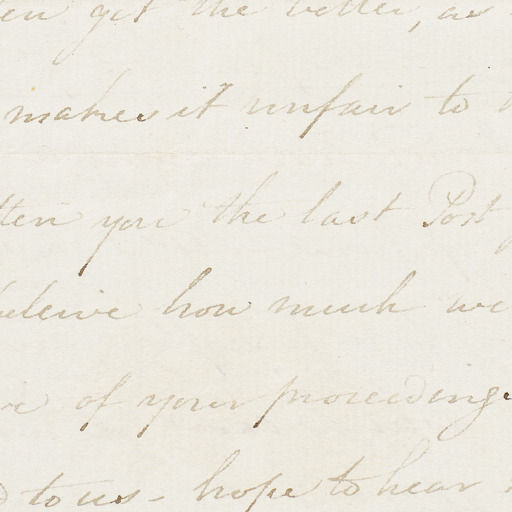 get the better, as
makes it unfair to
you the last Post
beleive how much we
of your proceedings
to us - hope to hear